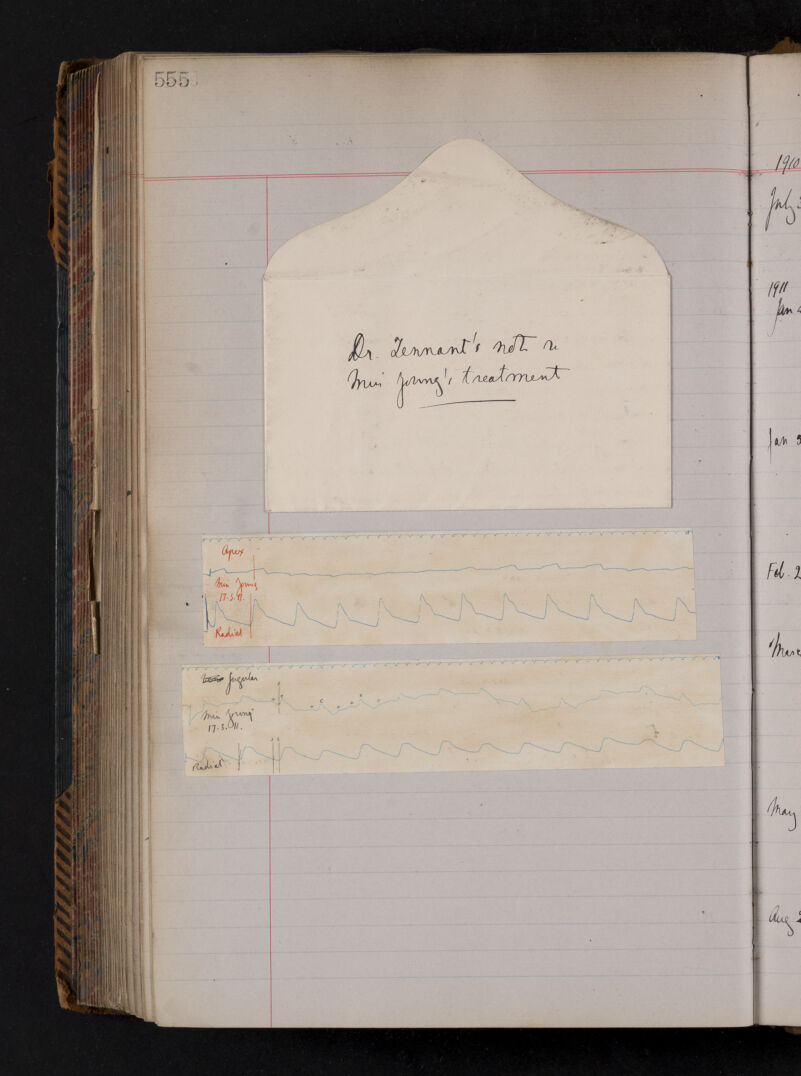 555
Dr. Tennant's note re
Miss Young's treatment
Apex
Miss Young
17.5.11.
Radial
Jugular
Miss Young
17.5.11.
Radial
1910
July 3
1911
Jan 4
Jan
Feb. 2
March
May
Aug 2